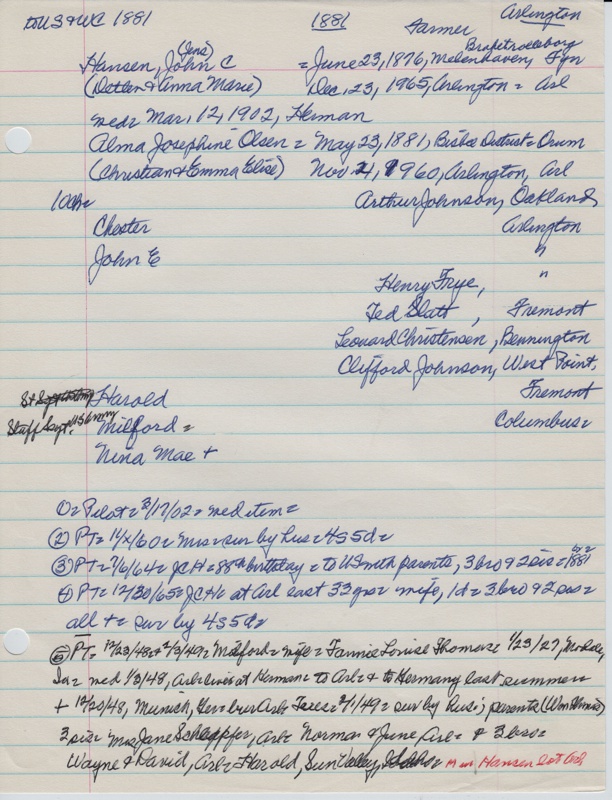 to US & WC 1881 1881 Farmer Arlington
(Jens) Brapetrolleborg
Hansen, John C = June 23, 1876, Melenhaven, Fyn
(Detlen & Anna Marie) Dec, 23, 1965, Arlington = Arl
med = Mar, 12, 1902, Herman
Alma Josephine Olsen = May 23, 1881, Bisboe District = Orum
(Christian & Emma Elise) Nov 24, 1960, Arlington, Arl
10ch = Arthur Johnson, Oakland,
Chester Arlington
John E "
Henry Frye, "
Ted Slatt, Fremont
Leonard Christensen, Bennington
Clifford Johnson, West Point,
Harold Fremont
Staff Sgt. Milford = Columbus =
Nina Mae +
① = Pilot = 3/17/02 = med item =
② PT = = mrs = sur by hus = 4S 5d =
③ PT = 7/6/64 = JCH = 88th birthday = to US with parents, 3 bro & 2 sis = in = 1881
④ PT = 12/30/65 = JCH = at Arl east 33 yrs = wife, 1d = 3 bro & 2 sis =
all + = sur by 4S 5d =
⑤ PT = 12/23/48 = & 2/3/49 = Milford = wife = Fannie Louise Thomas = 1/23/27,
Ia = med 1/3/48, Arl = lives at Herman = to Arl = & to Germany last summer
+ 12/20/48, Munich, Ger = bur Arl = 2/1/49 = sur by hus; parents (Wm)
3 sis = Mrs Jane Schaffer, Arl = Norma & June, Arl = & 3 bro =
Wayne & David, Arl = Harold, Sun Valley, Idaho = in Hansen lot Arl